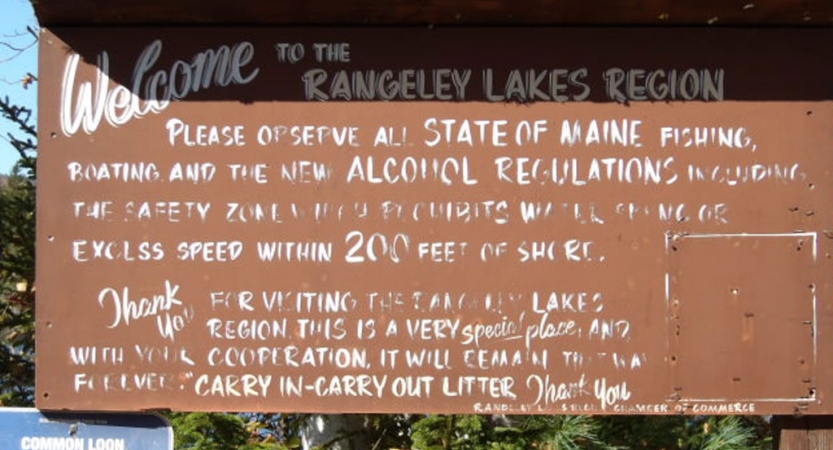 Welcome TO THE
RANGELEY LAKES REGION
PLEASE OBSERVE ALL STATE OF MAINE FISHING,
BOATING AND THE NEW ALCOHOL REGULATIONS INCLUDING
THE SAFETY ZONE WHICH PROHIBITS WATER SKIING OR
EXCESS SPEED WITHIN 200 FEET OF SHORE.
Thank You FOR VISITING THE RANGELEY LAKES
REGION. THIS IS A VERY special place, AND
WITH YOUR COOPERATION, IT WILL REMAIN THAT WAY
FOREVER. "CARRY IN-CARRY OUT LITTER Thank You
RANGELEY LAKES REGION CHAMBER OF COMMERCE
COMMON LOON